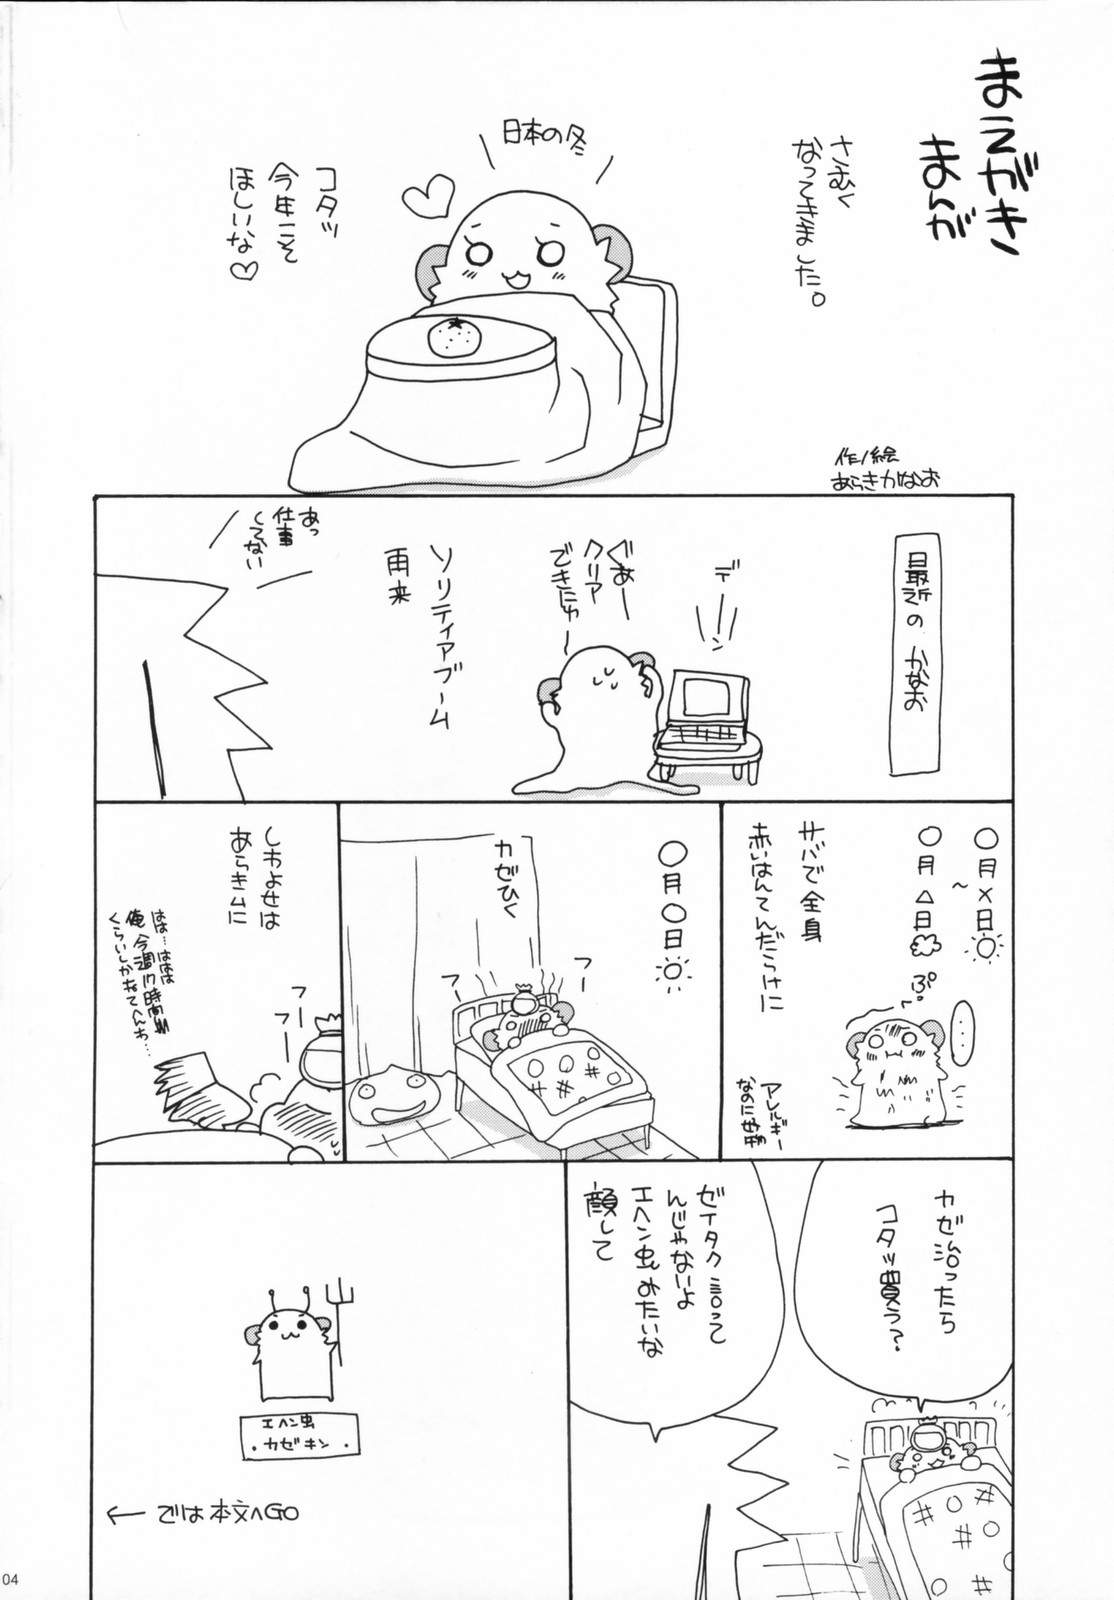 まえがき
まんが
さむく
なってきました。
日本の冬
コタツ
今年こそ
ほしいな♡
作/絵
あらきかなお
最近の かなお
デーン
ぐあー
クリア
できにゅー
ソリティアブーム
再来
あっ
仕事
してない
〇月×日
〜
〇月△日
サバで全身
赤いはんてんだらけに
ぷ。
…
アレルギー
なのに好物
〇月〇日
カゼひく
フー
フー
しわよせは
あらきムに
フー
フー
はは…ははは
俺今週17時間
くらいしかねてへんわ…
カゼ治ったら
コタツ買う?
ゼイタク言って
んじゃないよ
エヘン虫みたいな
顔して
エヘン虫
・カゼキン・
← では本文へGO
04